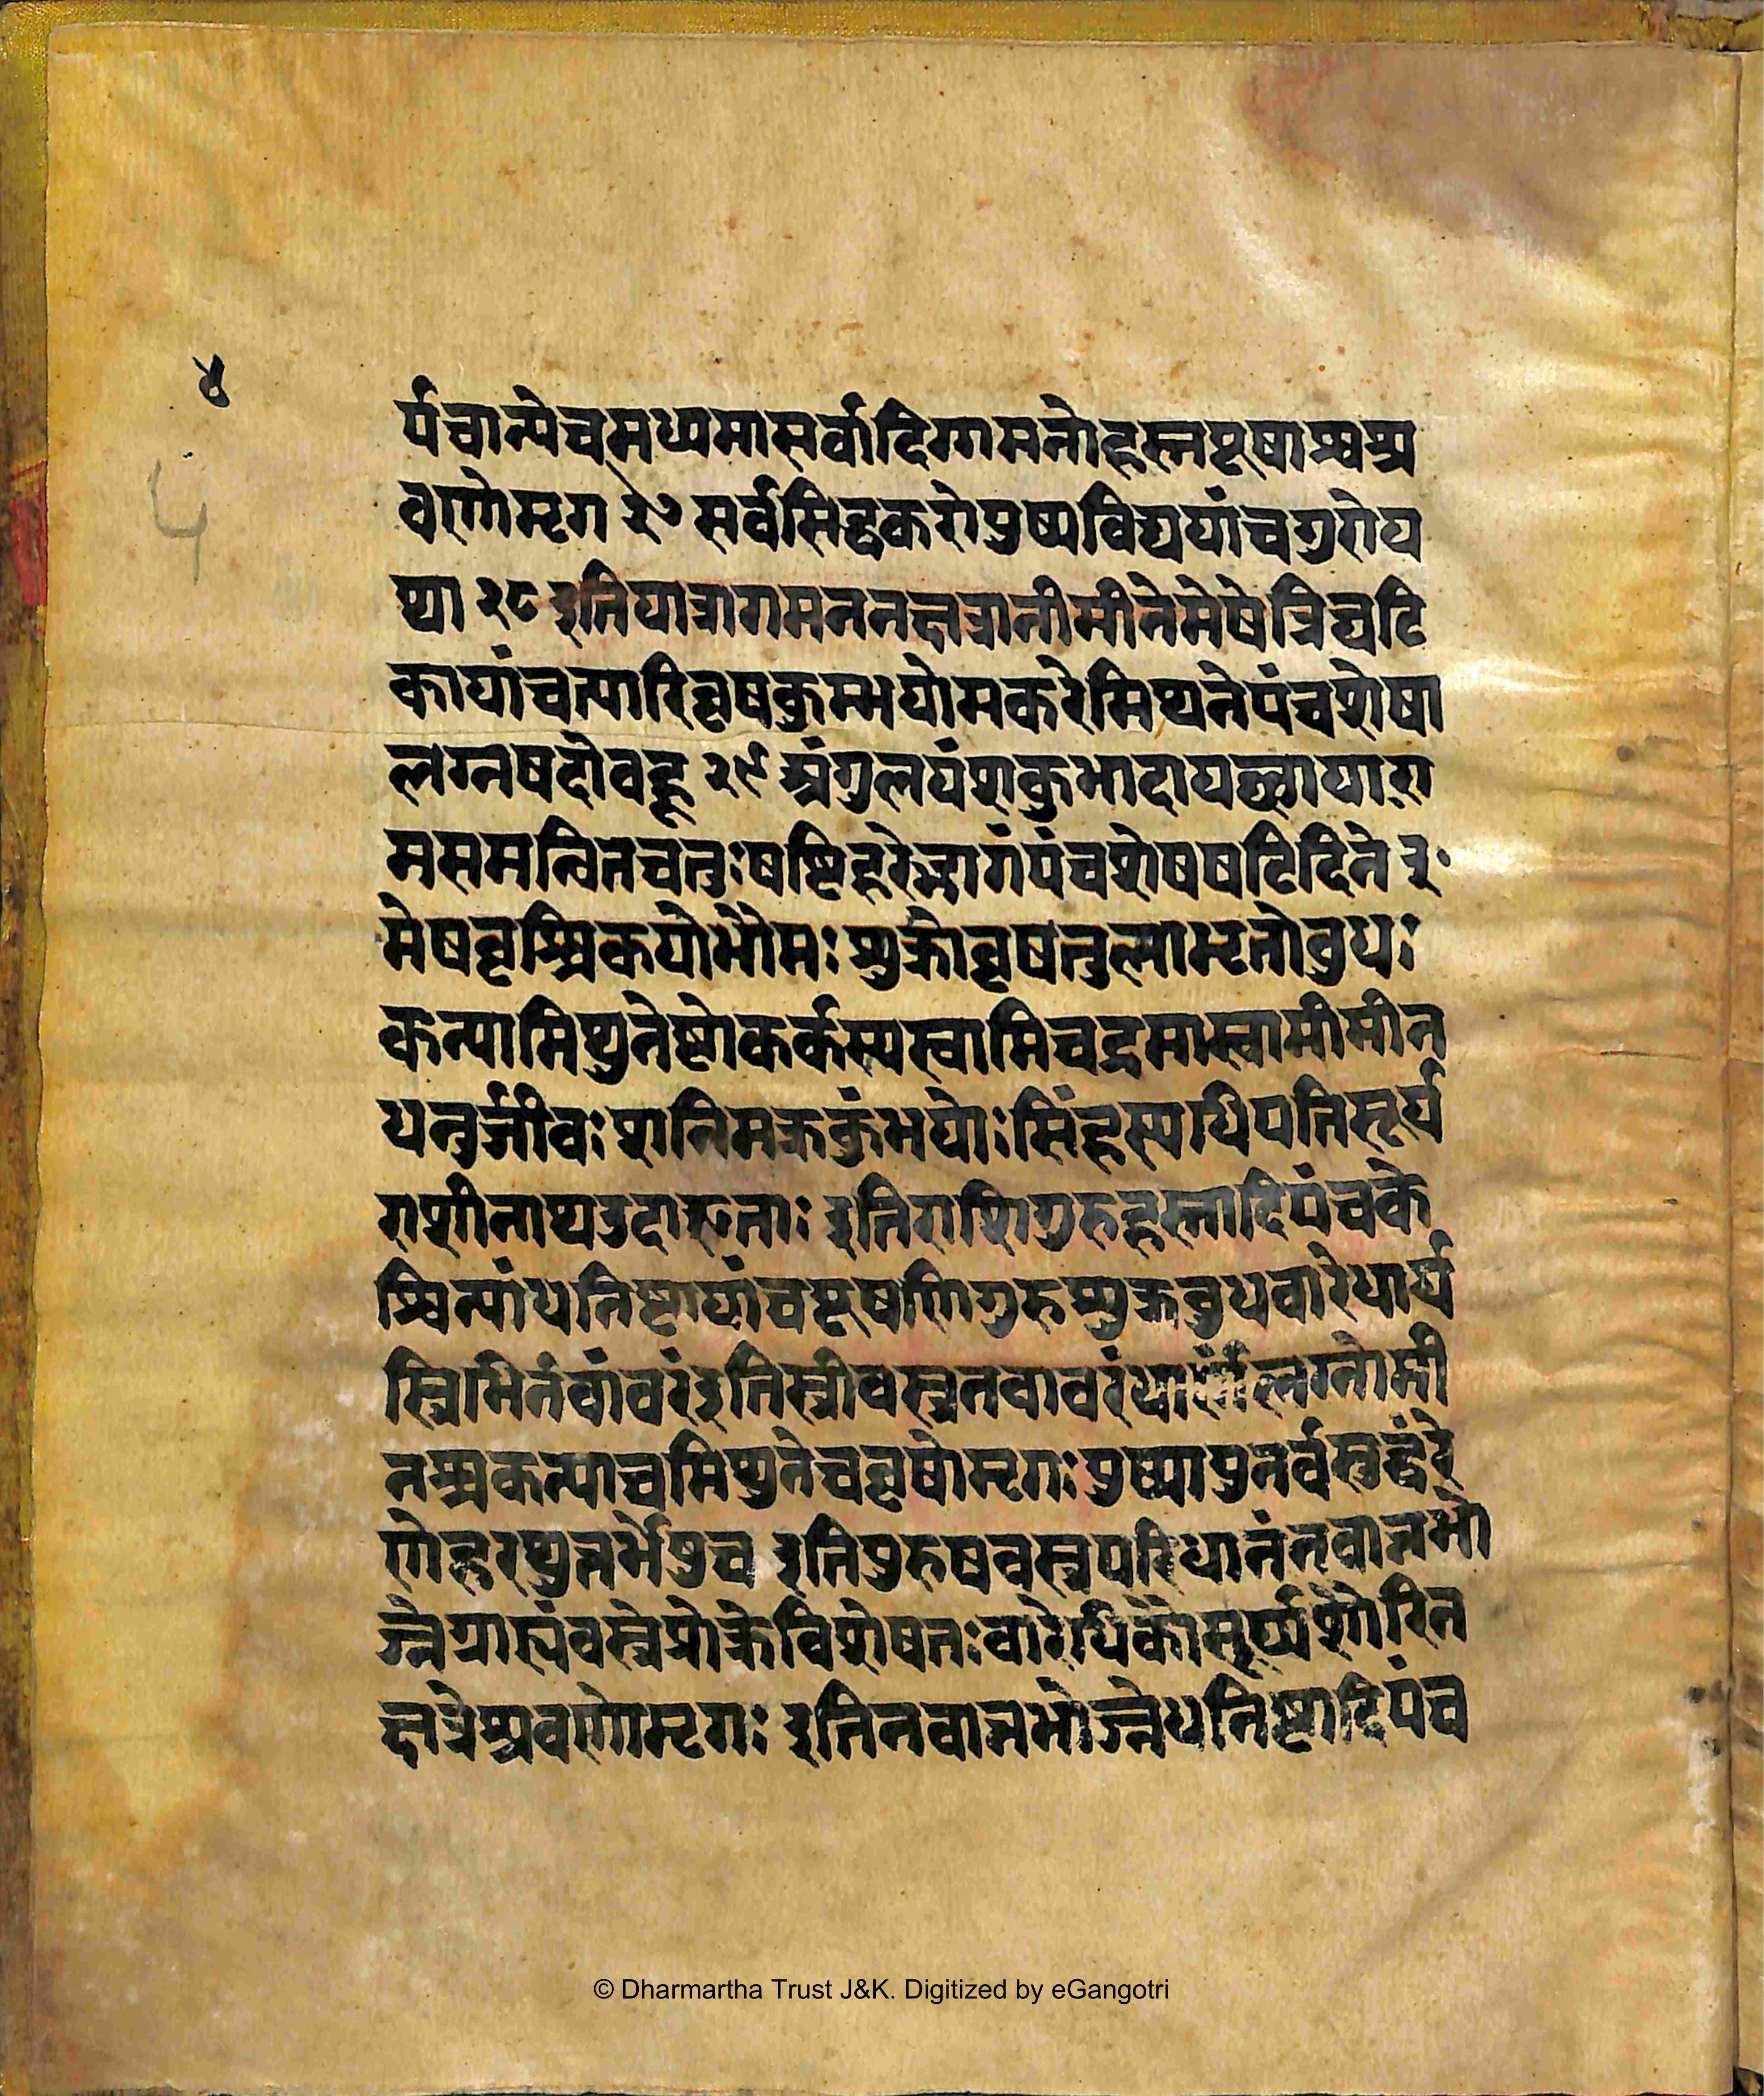 ४
५
र्यचान्येचमध्यमासर्वादिग्गमनोहस्तपूषाश्वश्र
वणोमृग २७ सर्वसिद्धकरोपुष्यविद्ययांचगुरोय
थ्या २८ इतियात्रागमननक्षत्रानीमीनेमेषेत्रिघटि
कायांचत्यारिवृषकुम्भयोमकरेमिथ्यनेपंचशेषा
लग्नषदोवहू २९ अंगुलयंशकुभादायच्छायारा
मसमन्वितचतुःषष्टिहरेद्भागंपंचशेषषटिदिने ३०
मेषवृश्चिकयोभौमः शुक्रोवृषतुलामृतोबुधः
कन्यामिथुनेष्टोकर्कस्यस्वामिचद्रमास्वामीमीन
धनुर्जीवः शनिमकरकुंभयोः सिंहस्यधिपतिसूर्य
राशीनाथ्यउदाहृताः इतिराशिगुरुहस्तादिपंचके
श्विन्यांधनिष्टायांचपूषणिगुरुशुक्रबुधवारेधार्य
स्त्रिभितंवांवरंइतिस्त्रीवस्त्रनवावरंधा लग्नोमी
नश्चकन्याचमिथुनेचवृषोमृगः पुष्यापुनर्वसुद्वंरे
णेहरथ्युत्तर्भेपुच इतिपुरुषवस्त्रपरिधानंनवान्नभो
ज्नेग्रास्यंवस्त्रेप्रोक्तेविशेषतः वारेधिकौसूर्य्यशौरिन
क्षत्रेश्रवणोमृगः इतिनवान्नभोज्नेधनिष्टादिपंच
© Dharmartha Trust J&K. Digitized by eGangotri